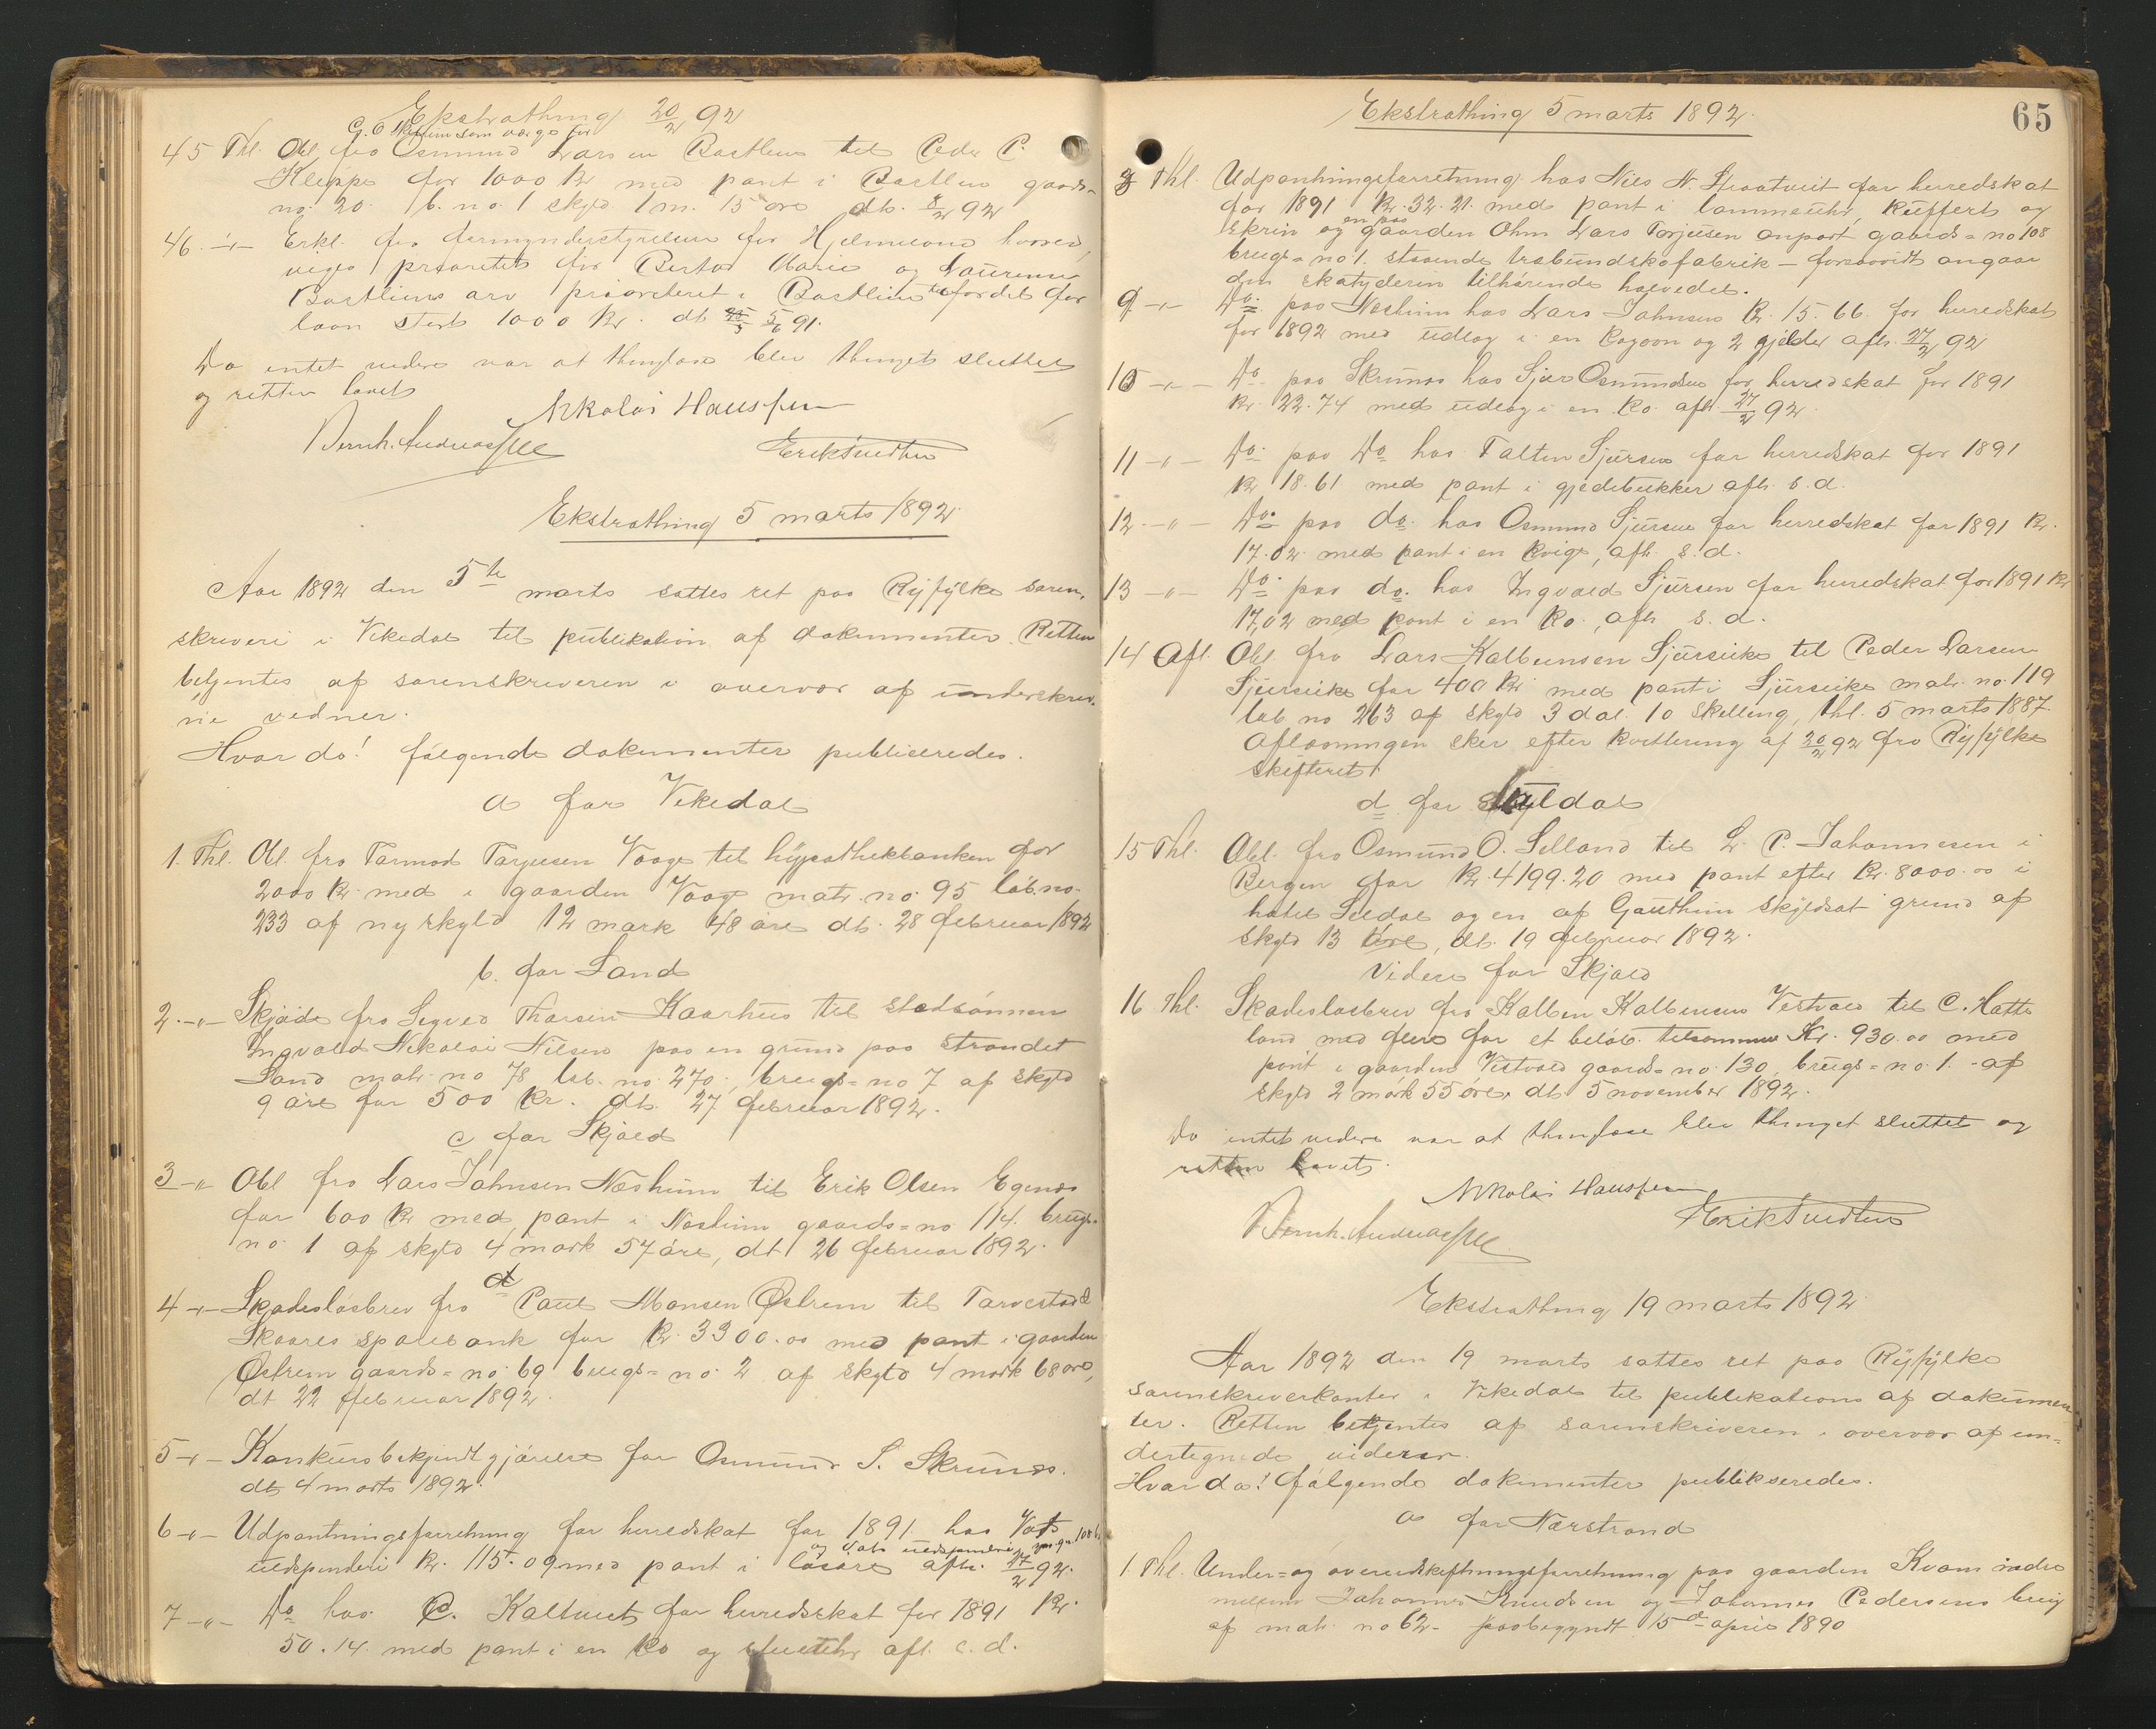 Ekstrathing 20/2 92
G. O. som værge for
45 Thl. Obl. fra Osmund Larsen Bastlien til Peder P.
Kleppe for 1000 Kr med pant i Bastlien gaards-
no. 20. b. no. 1 skyld 1 m. 15 øre dt. 8/2 92
46 -"- Erkl. fra formynderstyrelsen for Hjelmeland hvorved
viges prioritet for Berta Marie og Laurense
Bastliens arv prioriteret i Bastlien til fordel for
laan stort 1000 Kr. dt 5/6 91.
Da intet videre var at thinglæse blev thinget sluttet
og retten hævet
Nikolai Hansen
Bernh. Andreassen Erik Sundhus
Ekstrathing 5 marts 1892.
Aar 1892 den 5te marts sattes ret paa Ryfylke soren-
skriveri i Vikedal til publikation af dokumenter. Retten
betjentes af sorenskriveren i overvær af underskrev-
ne vidner.
Hvor da! følgende dokumenter publiseredes.
a for Vikedal
1. Thl. Obl. fra Tarmod Tarjeisen Vaage til hypothekbanken for
2000 Kr. med i gaarden Vaage matr. no. 95 løb. no.
233 af ny skyld 12 mark 48 øre dt. 28 februar 1892
b. for Sand
2. -"- Skjøde fra Sigved Tharsen Kaarhus til stedsønnen
Ingvald Nikolai Nilsen paa en grund paa strandet
Sand matr. no 78 løb. no. 270, brugs-no 7 af skyld
9 øre for 500 Kr. dt. 27 februar 1892.
c for Skjold
3 -"- Obl fra Lars Johnsen Næsheim til Erik Olsen Egenes
for 600 Kr med pant i Næsheim gaards-no 114. brugs-
no. 1 af skyld 4 mark 57 øre, dt 26 februar 1892.
d
4 -"- Skadesløsbrev fra Paul Monsen Østrem til Tarvestad
Skaares sparebank for Kr. 3300.00 med pant i gaarden
Østrem gaards-no. 69 brugs-no 2 af skyld 4 mark 68 øre,
dt 22 februar 1892.
5 -"- Konkursbekjendtgjørelse for Osmund S. Skrunes.
dt 4 marts 1892.
6 -"- Udpantningsforretning for herredskat for 1891 hos Vats
og Vats uldspinderi
uldspinderi Kr. 115.09 med pant i løsøre afh. 27/2 92.
7 -"- Do hos P. Kaltveit for herredskat for 1891 Kr.
50.14 med pant i en ko og stueuhr afh. s. d.
Ekstrathing 5 marts 1892.
65
8 Thl. Udpantningsforretning hos Nils N. Straatveit for herredskat
for 1891 Kr. 32.21. med pant i lommeuhr, kuffert og
en paa
skrin og gaarden Ohm Lars Torjeisen anpart gaards-no 108
brugs-no 1. staaende træbundskofabrik – forsaavidt angaar
den skatyderen tilhørende halvedel.
9 -"- Do. paa Næsheim hos Lars Johnsen Kr. 15.66. for herredskat
for 1892 med udlæg i en kogoon og 2 gjelder afh. 27/2 92
10 -"- Do. paa Skrunes hos Sjur Osmundsen for herredskat for 1891
Kr. 22.74 med udlæg i en ko. afh 27/2 92.
11 -"- Do. paa Do hos Falten Sjursen for herredskat for 1891
Kr 18.61 med pant i gjedebukker afh. s. d.
12. -"- Do. paa do. hos Osmund Sjursen for herredskat for 1891 Kr.
17.02. med pant i en kvige, afh. s. d.
13 -"- Do. paa do. hos Ingvald Sjursen for herredskat for 1891 Kr
17,02 med pant i en ko., afh. s. d.
14 Afl. Obl fra Lars Kalbeinsen Sjurseike til Peder Larsen
Sjurseike for 400 Kr med pant i Sjurseike matr. no. 119
løb no 263 af skyld 3 dal. 10 skilling, thl. 5 marts 1887.
Aflæsningen sker efter kvittering af 20/2 92 fra Ryfylke
skifteret
d for Suldal
15 Thl. Obl. fra Osmund O. Selland til L. P. Johannesen i
Bergen for Kr. 4199.20 med pant efter Kr. 8000.00 i
hotel Suldal og en af Gautheim skyldsat grund af
skyld 13 øre, dt. 19 februar 1892.
Videre for Skjold
16 Thl. Skadesløsbrev fra Kalbein Kalbeinsen Vestvold til C. Hatte
land med flere for et beløb tilsammen Kr. 930.00 med
pant i gaarden Vestvold gaards-no. 130, brugs-no. 1. af
skyld 2 mark 55 øre, dt. 5 november 1892.
Da intet videre var at thinglæse blev thinget sluttet og
retten hævet.
Nikolai Hansen
Bernh. Andreassen Erik Sundhus
Ekstrathing 19 marts 1892.
Aar 1892 den 19 marts sattes ret paa Ryfylke
sorenskriverkontor i Vikedal til publikations af dokumen
ter. Retten betjentes af sorenskriveren i overvær af un-
dertegnede vidner.
Hvor da! følgende dokumenter publikseredes.
a for Nærstrand
1 Thl. Under- og overudskiftningsforretning paa gaarden Kvam indre
mellem Johannes Knudsen og Johannes Pedersens brug
af matr. no 62 - paabegyndt 15de april 1890